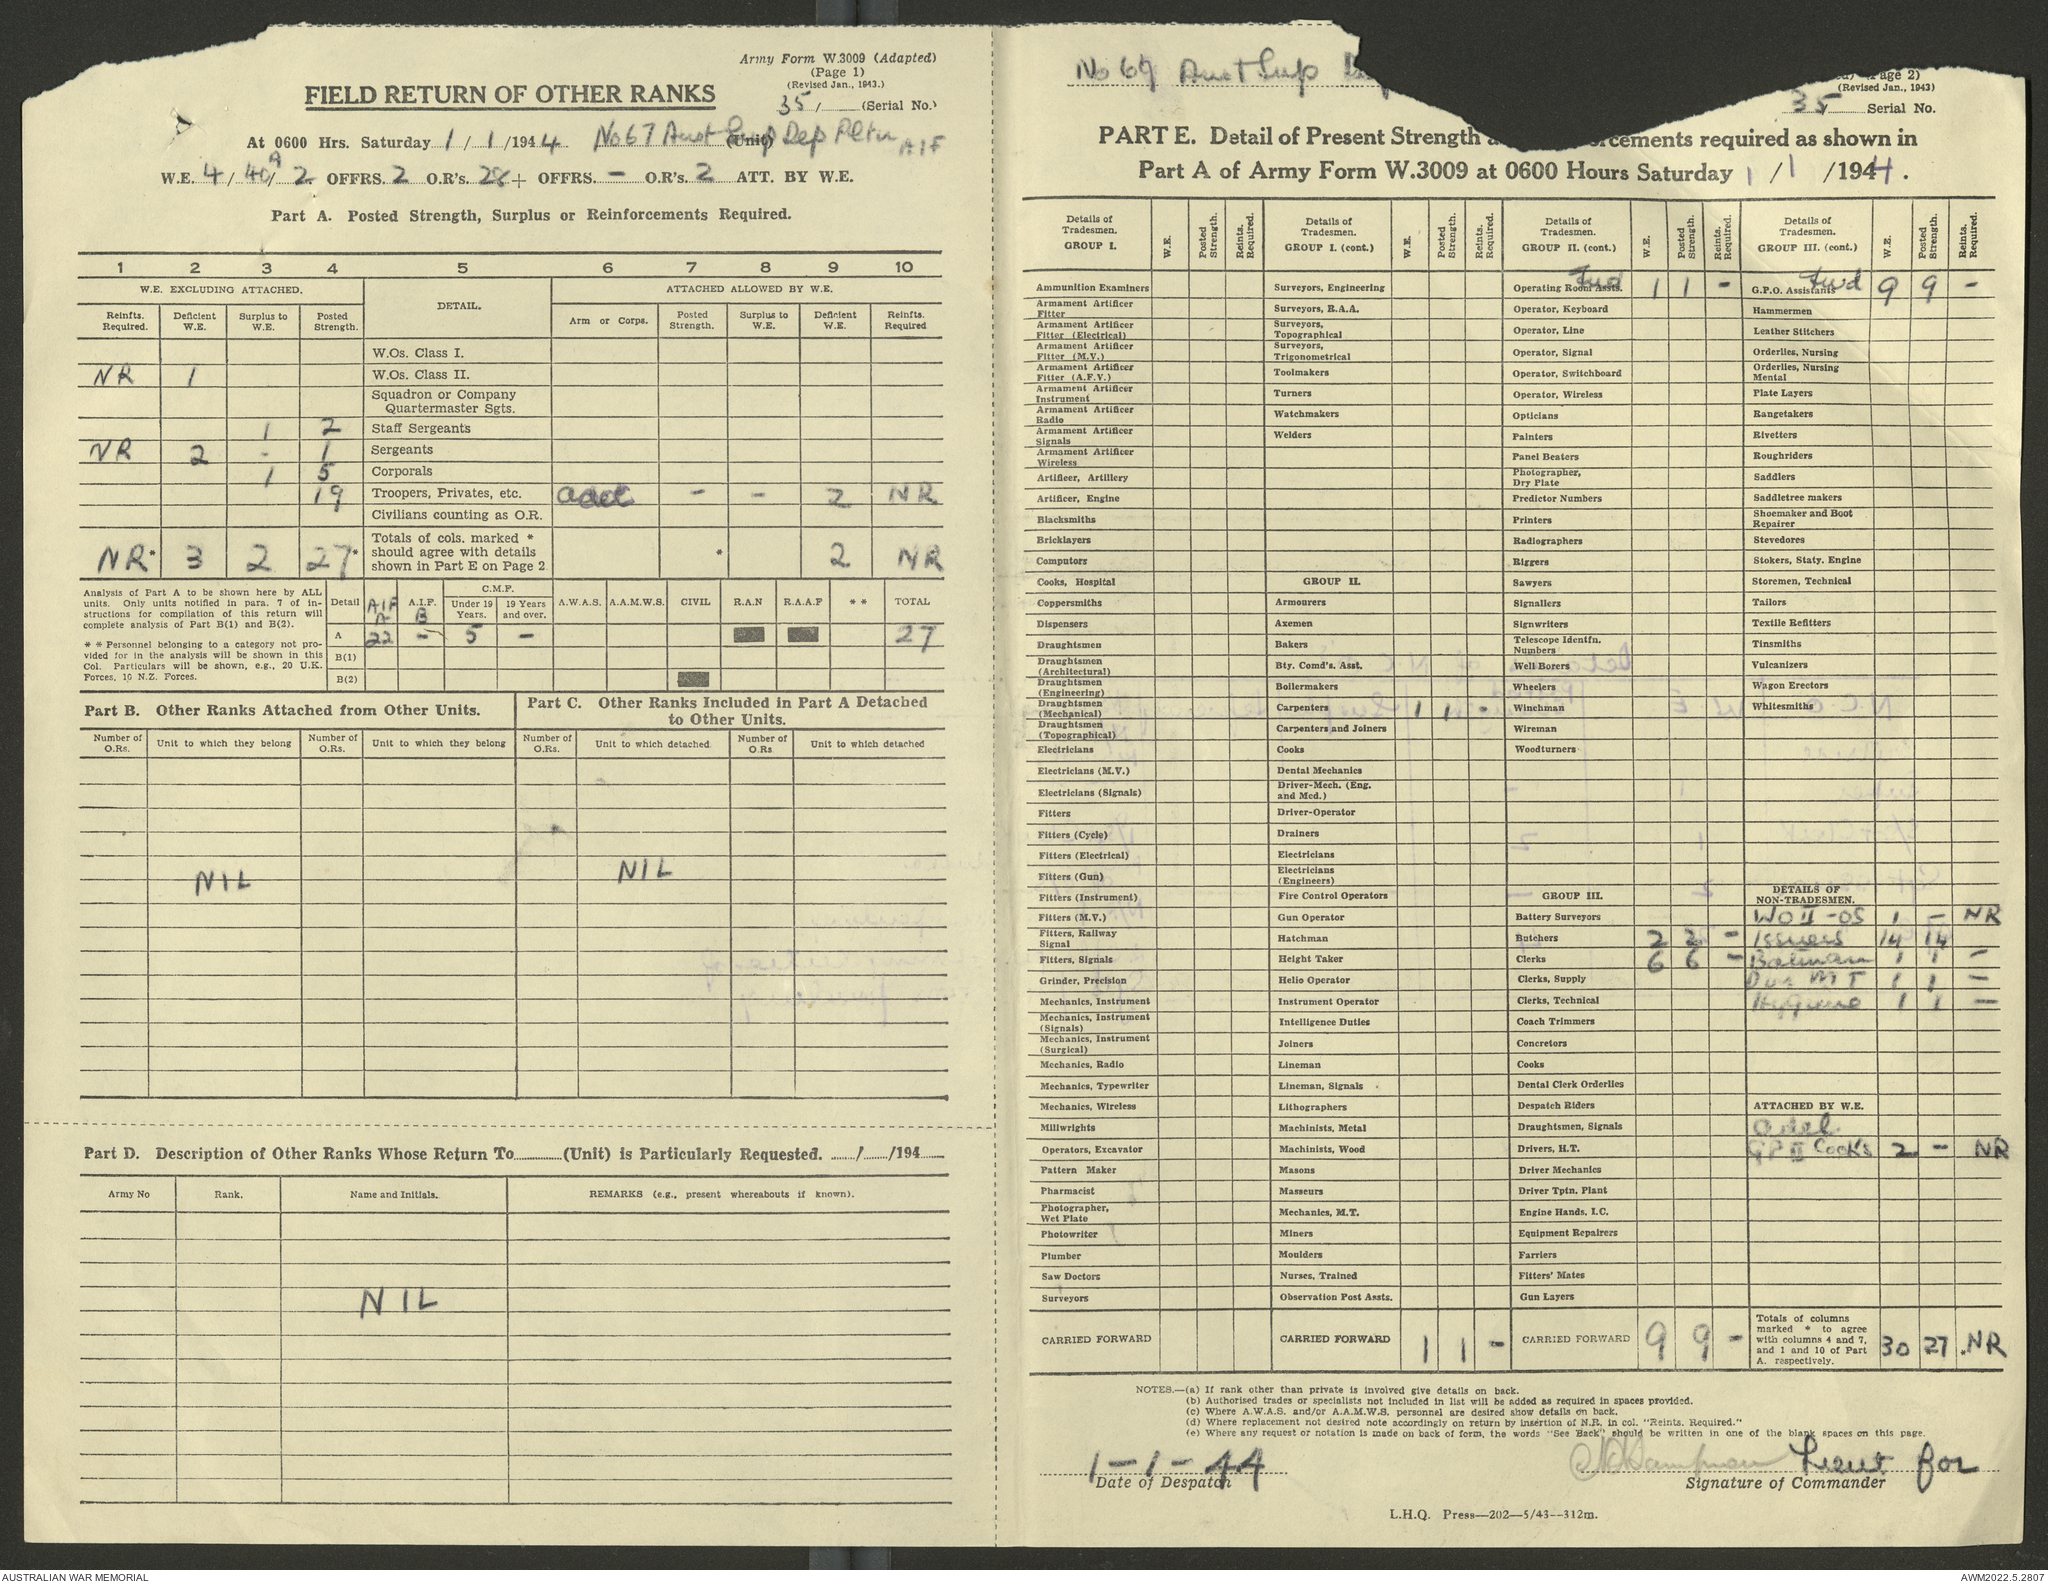 Army Form W.3009 (Adapted)
(Page 1)
(Revised Jan., 1943.)
FIELD RETURN OF OTHER RANKS
35/ (Serial No.)
At 0600 Hrs. Saturday 1 / 1 /1944 No 67 Aust Sup Dep Pltn (Unit) AIF
W.E. 4 / 40A / 2 OFFRS. 2 O.R's. 28 + OFFRS. — O.R's. 2 ATT. BY W.E.
Part A. Posted Strength, Surplus or Reinforcements Required.
1 2 3 4 5 6 7 8 9 10
W.E. EXCLUDING ATTACHED. DETAIL. ATTACHED ALLOWED BY W.E.
Reinfts. Required. Deficient W.E. Surplus to W.E. Posted Strength. Arm or Corps. Posted Strength. Surplus to W.E. Deficient W.E. Reinfts. Required
W.Os. Class I.
NR 1 W.Os. Class II.
Squadron or Company Quartermaster Sgts.
1 2 Staff Sergeants
NR 2 - 1 Sergeants
1 5 Corporals
19 Troopers, Privates, etc. aacc — — 2 NR
Civilians counting as O.R.
NR* 3 2 27* Totals of cols. marked * should agree with details shown in Part E on Page 2 * 2 NR
Analysis of Part A to be shown here by ALL units. Only units notified in para. 7 of instructions for compilation of this return will complete analysis of Part B(1) and B(2).
* * Personnel belonging to a category not provided for in the analysis will be shown in this Col. Particulars will be shown, e.g., 20 U.K. Forces, 10 N.Z. Forces.
Detail AIF A A.I.F. B C.M.F. Under 19 Years. 19 Years and over. A.W.A.S. A.A.M.W.S. CIVIL R.A.N R.A.A.F * * TOTAL
A 22 — 5 — 27
B(1)
B(2)
Part B. Other Ranks Attached from Other Units.
Number of O.Rs. Unit to which they belong Number of O.Rs. Unit to which they belong
NIL
Part C. Other Ranks Included in Part A Detached to Other Units.
Number of O.Rs. Unit to which detached. Number of O.Rs Unit to which detached
NIL
Part D. Description of Other Ranks Whose Return To (Unit) is Particularly Requested. / /194
Army No Rank. Name and Initials. REMARKS (e.g., present whereabouts if known).
NIL
No 67 Aust Sup
(Page 2)
(Revised Jan., 1943)
35 Serial No.
PART E. Detail of Present Strength a cements required as shown in
Part A of Army Form W.3009 at 0600 Hours Saturday 1 / 1 /1944.
Details of Tradesmen. GROUP I. W.E. Posted Strength. Reints. Required.
Ammunition Examiners
Armament Artificer Fitter
Armament Artificer Fitter (Electrical)
Armament Artificer Fitter (M.V.)
Armament Artificer Fitter (A.F.V.)
Armament Artificer Instrument
Armament Artificer Radio
Armament Artificer Signals
Armament Artificer Wireless
Artificer, Artillery
Artificer, Engine
Blacksmiths
Bricklayers
Computors
Cooks, Hospital
Coppersmiths
Dispensers
Draughtsmen
Draughtsmen (Architectural)
Draughtsmen (Engineering)
Draughtsmen (Mechanical)
Draughtsmen (Topographical)
Electricians
Electricians (M.V.)
Electricians (Signals)
Fitters
Fitters (Cycle)
Fitters (Electrical)
Fitters (Gun)
Fitters (Instrument)
Fitters (M.V.)
Fitters, Railway Signal
Fitters, Signals
Grinder, Precision
Mechanics, Instrument
Mechanics, Instrument (Signals)
Mechanics, Instrument (Surgical)
Mechanics, Radio
Mechanics, Typewriter
Mechanics, Wireless
Millwrights
Operators, Excavator
Pattern Maker
Pharmacist
Photographer, Wet Plate
Photowriter
Plumber
Saw Doctors
Surveyors
CARRIED FORWARD
Details of Tradesmen. GROUP I. (cont.) W.E. Posted Strength. Reints. Required.
Surveyors, Engineering
Surveyors, R.A.A.
Surveyors, Topographical
Surveyors, Trigonometrical
Toolmakers
Turners
Watchmakers
Welders
GROUP II.
Armourers
Axemen
Bakers
Bty. Comd's. Asst.
Boilermakers
Carpenters 1 1 -
Carpenters and Joiners
Cooks
Dental Mechanics
Driver-Mech. (Eng. and Med.)
Driver-Operator
Drainers
Electricians
Electricians (Engineers)
Fire Control Operators
Gun Operator
Hatchman
Height Taker
Helio Operator
Instrument Operator
Intelligence Duties
Joiners
Lineman
Lineman, Signals
Lithographers
Machinists, Metal
Machinists, Wood
Masons
Masseurs
Mechanics, M.T.
Miners
Moulders
Nurses, Trained
Observation Post Assts.
CARRIED FORWARD 1 1 —
Details of Tradesmen. GROUP II. (cont.) W.E. Posted Strength. Reints. Required.
Fwd
Operating Room Assts. 1 1 -
Operator, Keyboard
Operator, Line
Operator, Signal
Operator, Switchboard
Operator, Wireless
Opticians
Painters
Panel Beaters
Photographer, Dry Plate
Predictor Numbers
Printers
Radiographers
Riggers
Sawyers
Signallers
Signwriters
Telescope Identfn. Numbers
Well Borers
Wheelers
Winchman
Wireman
Woodturners
GROUP III.
Battery Surveyors
Butchers 2 2 —
Clerks 6 6 —
Clerks, Supply
Clerks, Technical
Coach Trimmers
Concretors
Cooks
Dental Clerk Orderlies
Despatch Riders
Draughtsmen, Signals
Drivers, H.T.
Driver Mechanics
Driver Tptn. Plant
Engine Hands, I.C.
Equipment Repairers
Farriers
Fitters' Mates
Gun Layers
CARRIED FORWARD 9 9 —
Details of Tradesmen. GROUP III. (cont.) W.E. Posted Strength. Reints. Required.
Fwd
G.P.O. Assistants 9 9 —
Hammermen
Leather Stitchers
Orderlies, Nursing
Orderlies, Nursing Mental
Plate Layers
Rangetakers
Rivetters
Roughriders
Saddlers
Saddletree makers
Shoemaker and Boot Repairer
Stevedores
Stokers, Staty. Engine
Storemen, Technical
Tailors
Textile Refitters
Tinsmiths
Vulcanizers
Wagon Erectors
Whitesmiths
DETAILS OF NON-TRADESMEN.
WO II - OS 1 — NR
Issuers 14 14
Batman 1 1 —
Dvr MT 1 1 —
Hygiene 1 1 —
ATTACHED BY W.E.
GP II Cooks 2 — NR
Totals of columns marked * to agree with columns 4 and 7, and 1 and 10 of Part A. respectively. 30 27 NR
NOTES.—(a) If rank other than private is involved give details on back.
(b) Authorised trades or specialists not included in list will be added as required in spaces provided.
(c) Where A.W.A.S. and/or A.A.M.W.S. personnel are desired show details on back.
(d) Where replacement not desired note accordingly on return by insertion of N.R. in col. "Reints. Required."
(e) Where any request or notation is made on back of form, the words "See Back" should be written in one of the blank spaces on this page.
1-1-44
Date of Despatch
Lieut for
Signature of Commander
L.H.Q. Press—202—5/43—312m.
AUSTRALIAN WAR MEMORIAL
AWM2022.5.2807